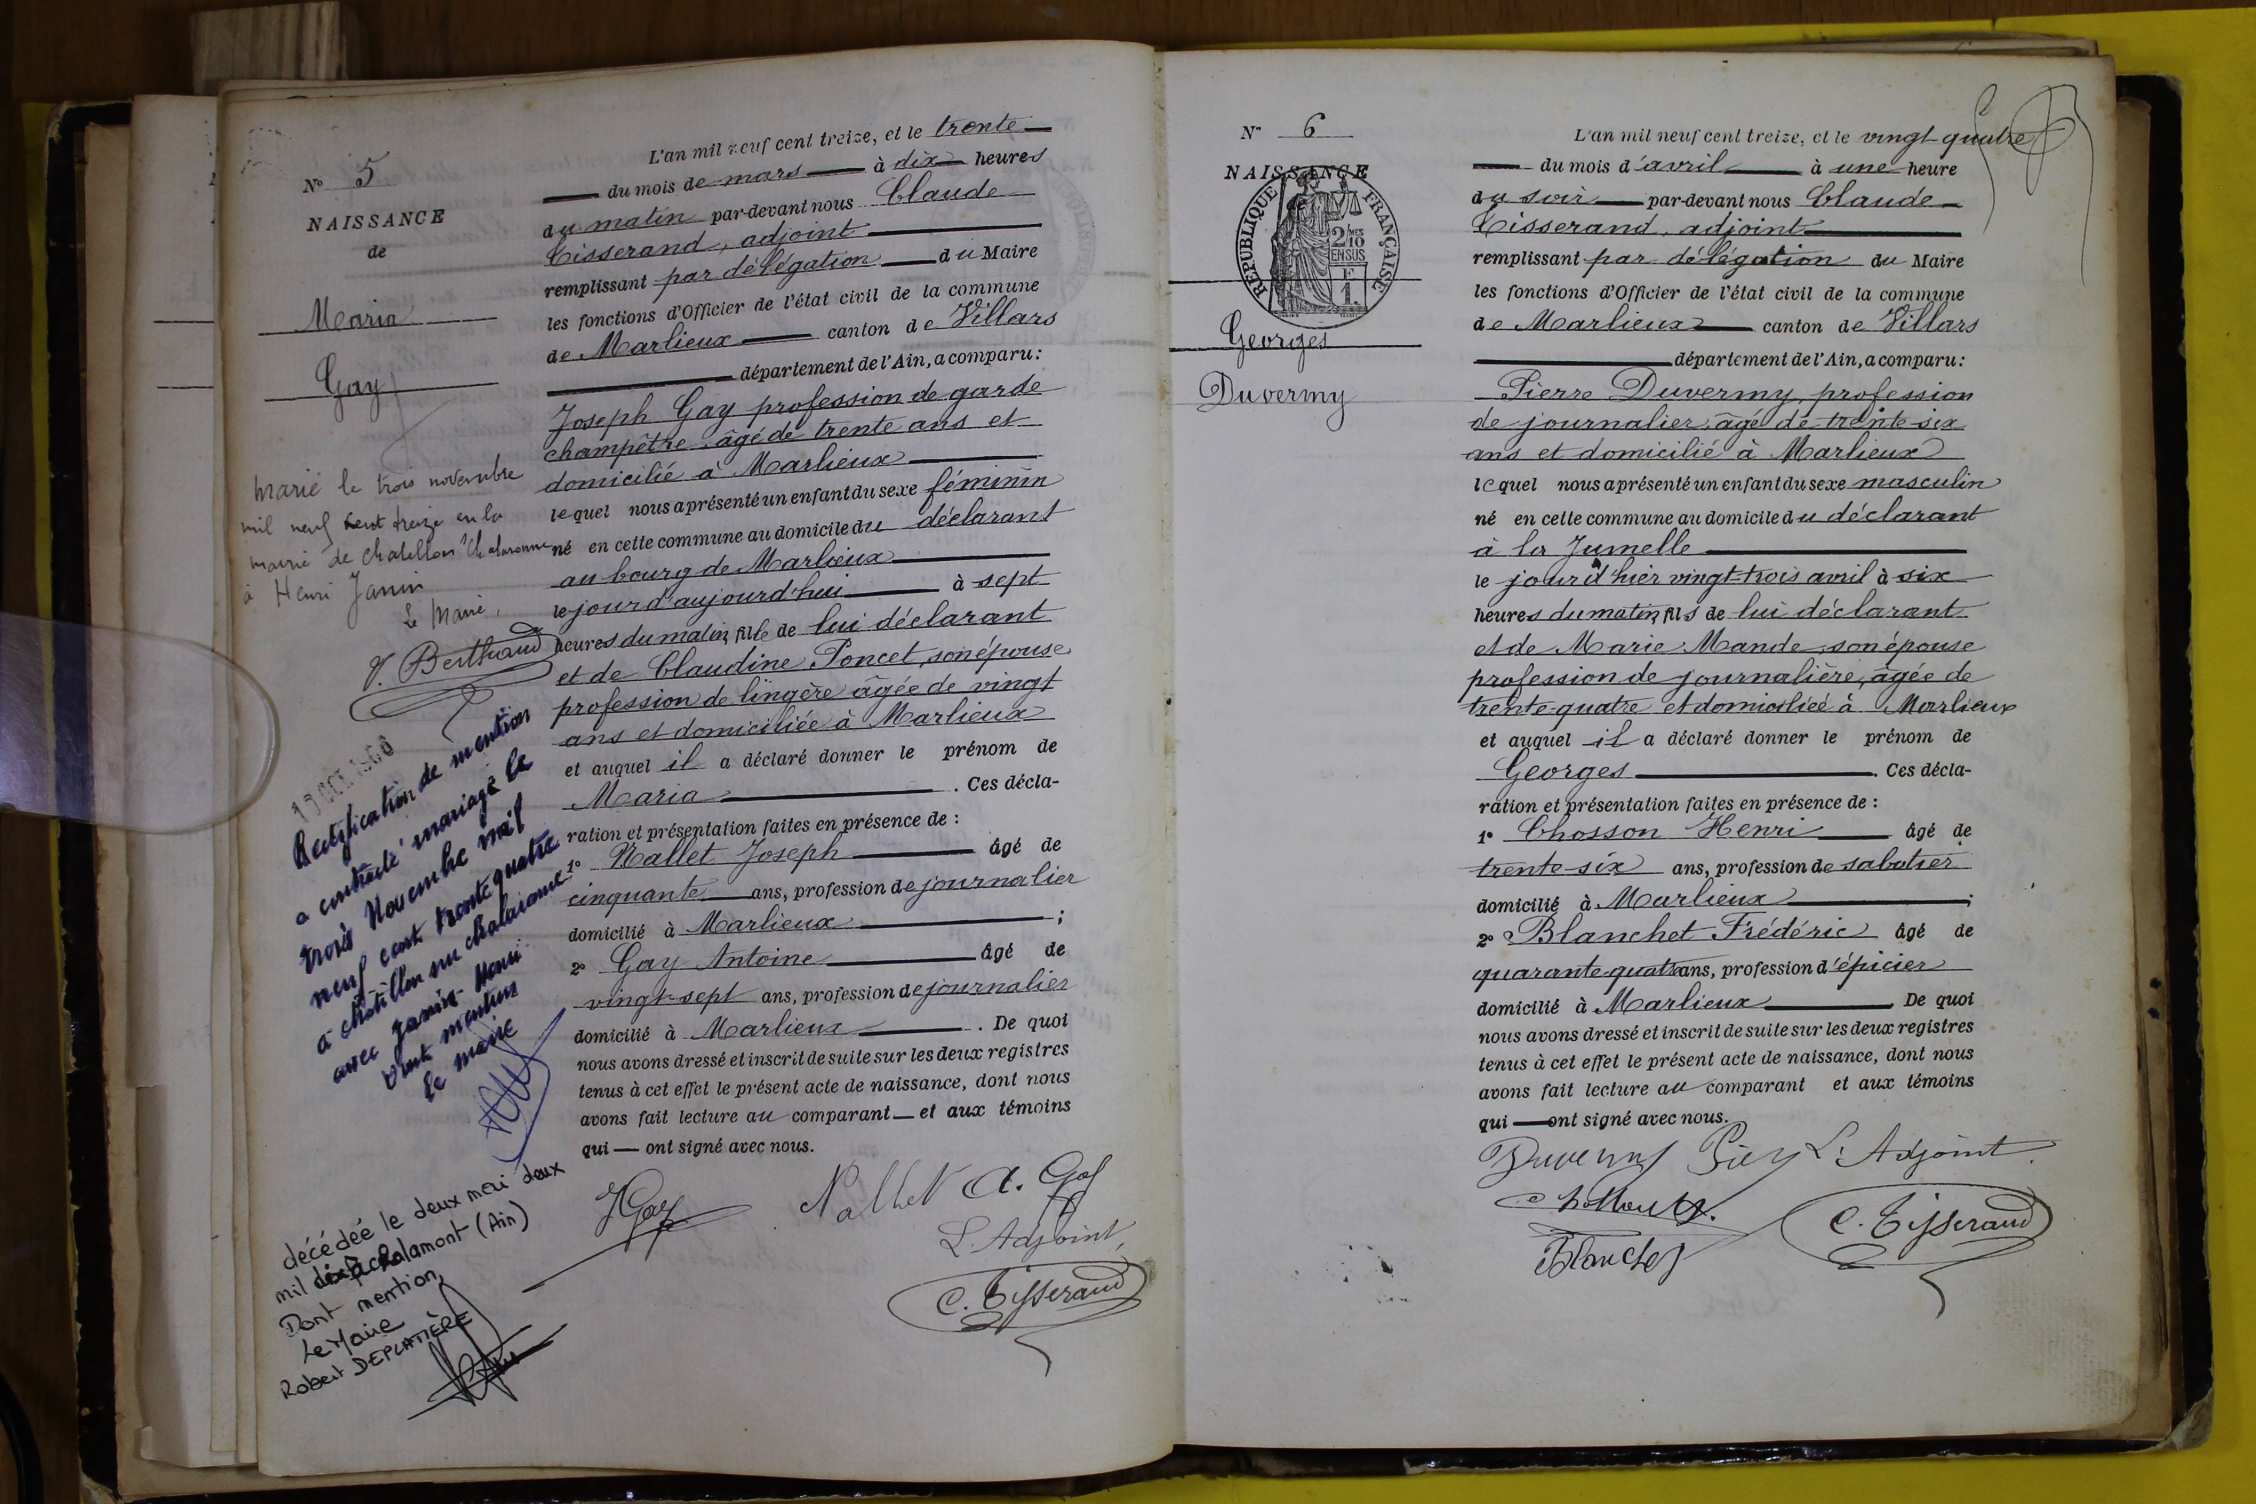 N° 5
NAISSANCE
de
Maria
Gay
Marié le trois novembre
mil neuf cent treize en la
mairie de Chatillon s/ Chalaronne
à Henri Janin
Le Maire,
V. Berthaud
Rectification de mention
a contracté mariage le
trois Novembre mil
neuf cent trente quatre
à Châtillon sur Chalaronne
avec Janin Henri
Dont mention
Le maire
décédée le deux mai deux
mil dix à Chalamont (Ain)
Dont mention
Le Maire
Robert DEPLATIÈRE
L'an mil neuf cent treize, et le trente
du mois de mars à dix heures
du matin par-devant nous Claude
Tisserand, adjoint
remplissant par délégation du Maire
les fonctions d'Officier de l'état civil de la commune
de Marlieux canton de Villars
département de l'Ain, a comparu:
Joseph Gay profession de garde
champêtre âgé de trente ans et
domicilié à Marlieux
lequel nous a présenté un enfant du sexe féminin
né en cette commune au domicile du déclarant
au bourg de Marlieux
le jour d'aujourd'hui à sept
heures du matin, fille de lui déclarant
et de Claudine Poncet, son épouse
profession de lingère âgée de vingt
ans et domiciliée à Marlieux
et auquel il a déclaré donner le prénom de
Maria . Ces décla-
ration et présentation faites en présence de :
1° Nallet Joseph âgé de
cinquante ans, profession de journalier
domicilié à Marlieux ;
2° Gay Antoine âgé de
vingt-sept ans, profession de journalier
domicilié à Marlieux . De quoi
nous avons dressé et inscrit de suite sur les deux registres
tenus à cet effet le présent acte de naissance, dont nous
avons fait lecture au comparant et aux témoins
qui ont signé avec nous.
J Gay Nallet A. Gay
L'Adjoint,
C. Tisserand
N° 6
NAISSANCE
RÉPUBLIQUE FRANÇAISE
2/10
MES
EN SUS
F
1.
Georges
Duvermy
L'an mil neuf cent treize, et le vingt quatre
du mois d'avril à une heure
du soir par-devant nous Claude
Tisserand, adjoint
remplissant par délégation du Maire
les fonctions d'Officier de l'état civil de la commune
de Marlieux canton de Villars
département de l'Ain, a comparu:
Pierre Duvermy, profession
de journalier, âgé de trente-six
ans et domicilié à Marlieux
lequel nous a présenté un enfant du sexe masculin
né en cette commune au domicile du déclarant
à la Jumelle
le jour d'hier vingt-trois avril à six
heures du matin, fils de lui déclarant
et de Marie Mande, son épouse
profession de journalière, âgée de
trente-quatre et domiciliée à Marlieux
et auquel il a déclaré donner le prénom de
Georges . Ces décla-
ration et présentation faites en présence de :
1° Chosson Henri âgé de
trente-six ans, profession de sabotier
domicilié à Marlieux ;
2° Blanchet Frédéric âgé de
quarante-quatre ans, profession d'épicier
domicilié à Marlieux De quoi
nous avons dressé et inscrit de suite sur les deux registres
tenus à cet effet le présent acte de naissance, dont nous
avons fait lecture au comparant et aux témoins
qui ont signé avec nous.
L'Adjoint
C. Tisserand
Blanchet